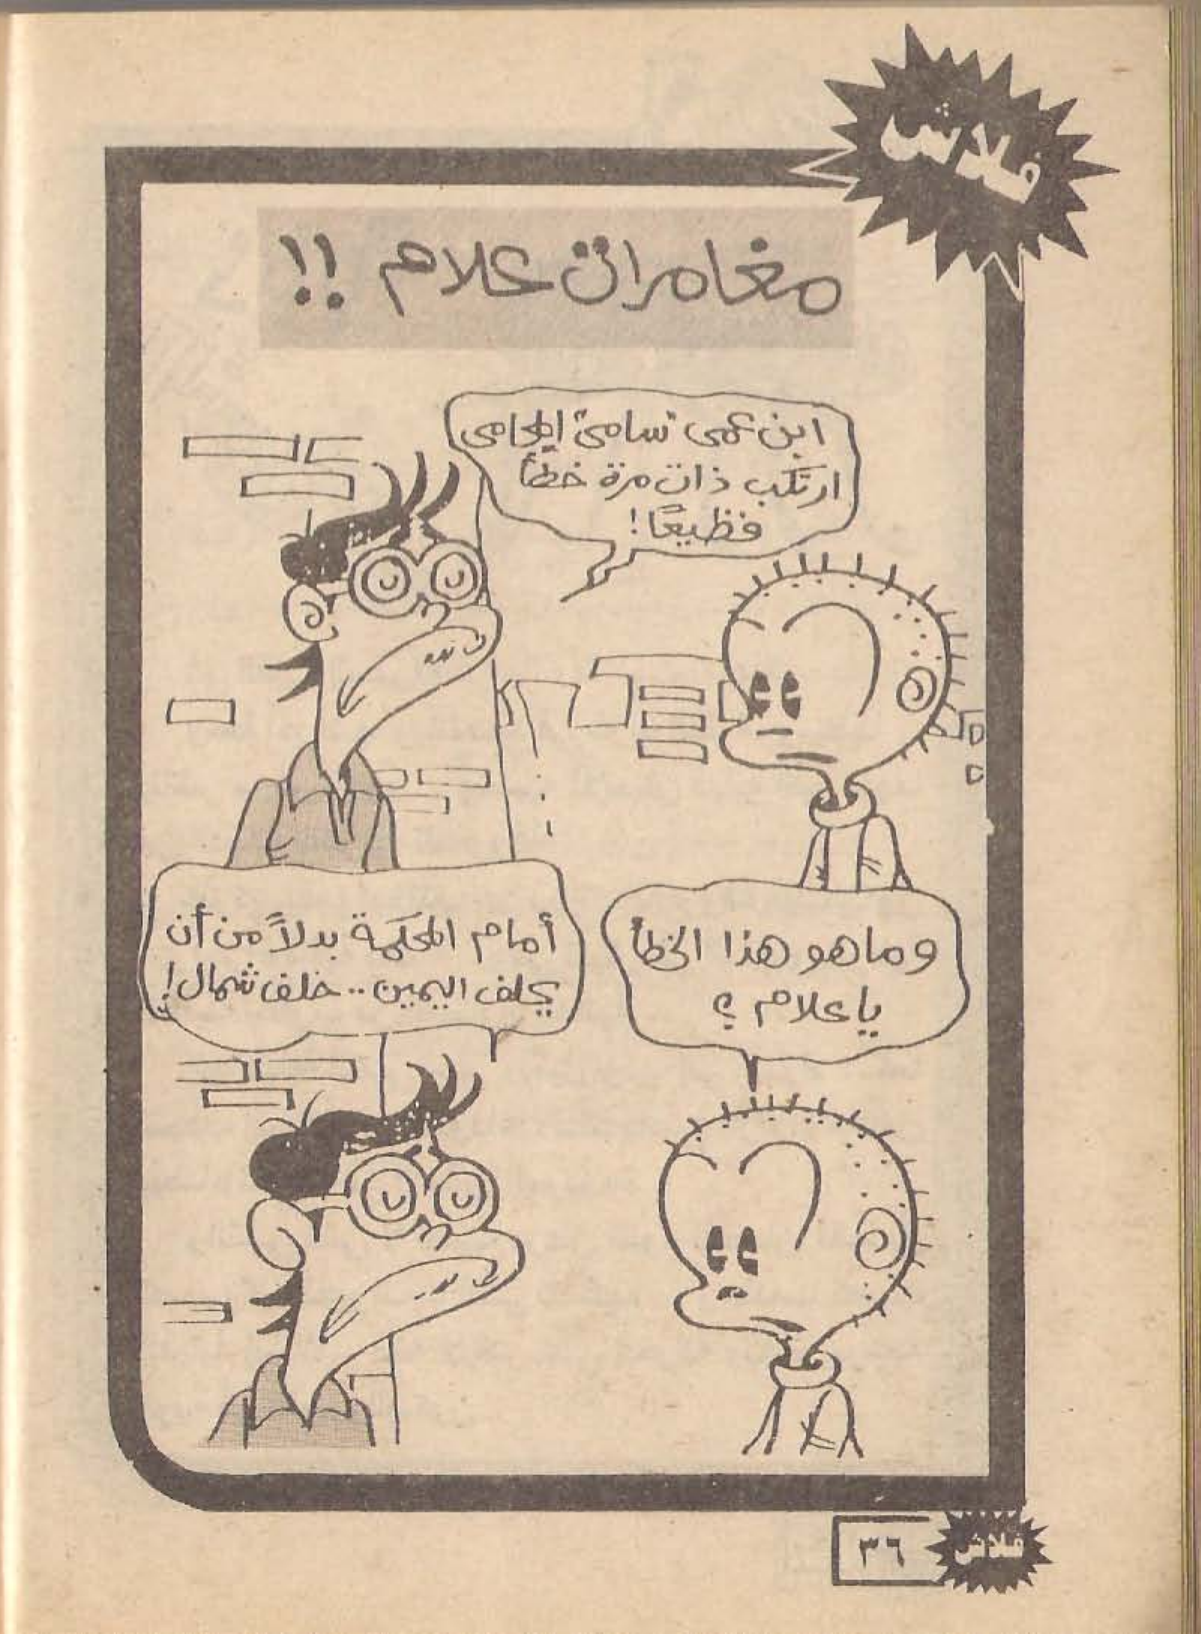 فلاش
مغامرات علام !!
ابن عمى "سامى" المحامى
ارتكب ذات مرة خطأ
فظيعًا!
وما هو هذا الخطأ
يا علام ؟
أمام المحكمة بدلاً من أن
يحلف اليمين .. حلف شمال!
٣٦
فلاش